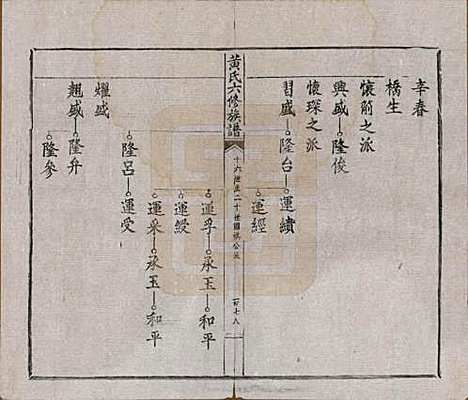 辛春
橋生
懷前之派
興盛 隆俊
懷琛之派
習盛 隆台 運續
運經
黃氏六修族譜
十六世至二十世國禎公派
百七八
運孚 承玉 和平
運綬
運采 承玉 和平
隆呂 運受
耀盛
翹盛 隆升
隆參